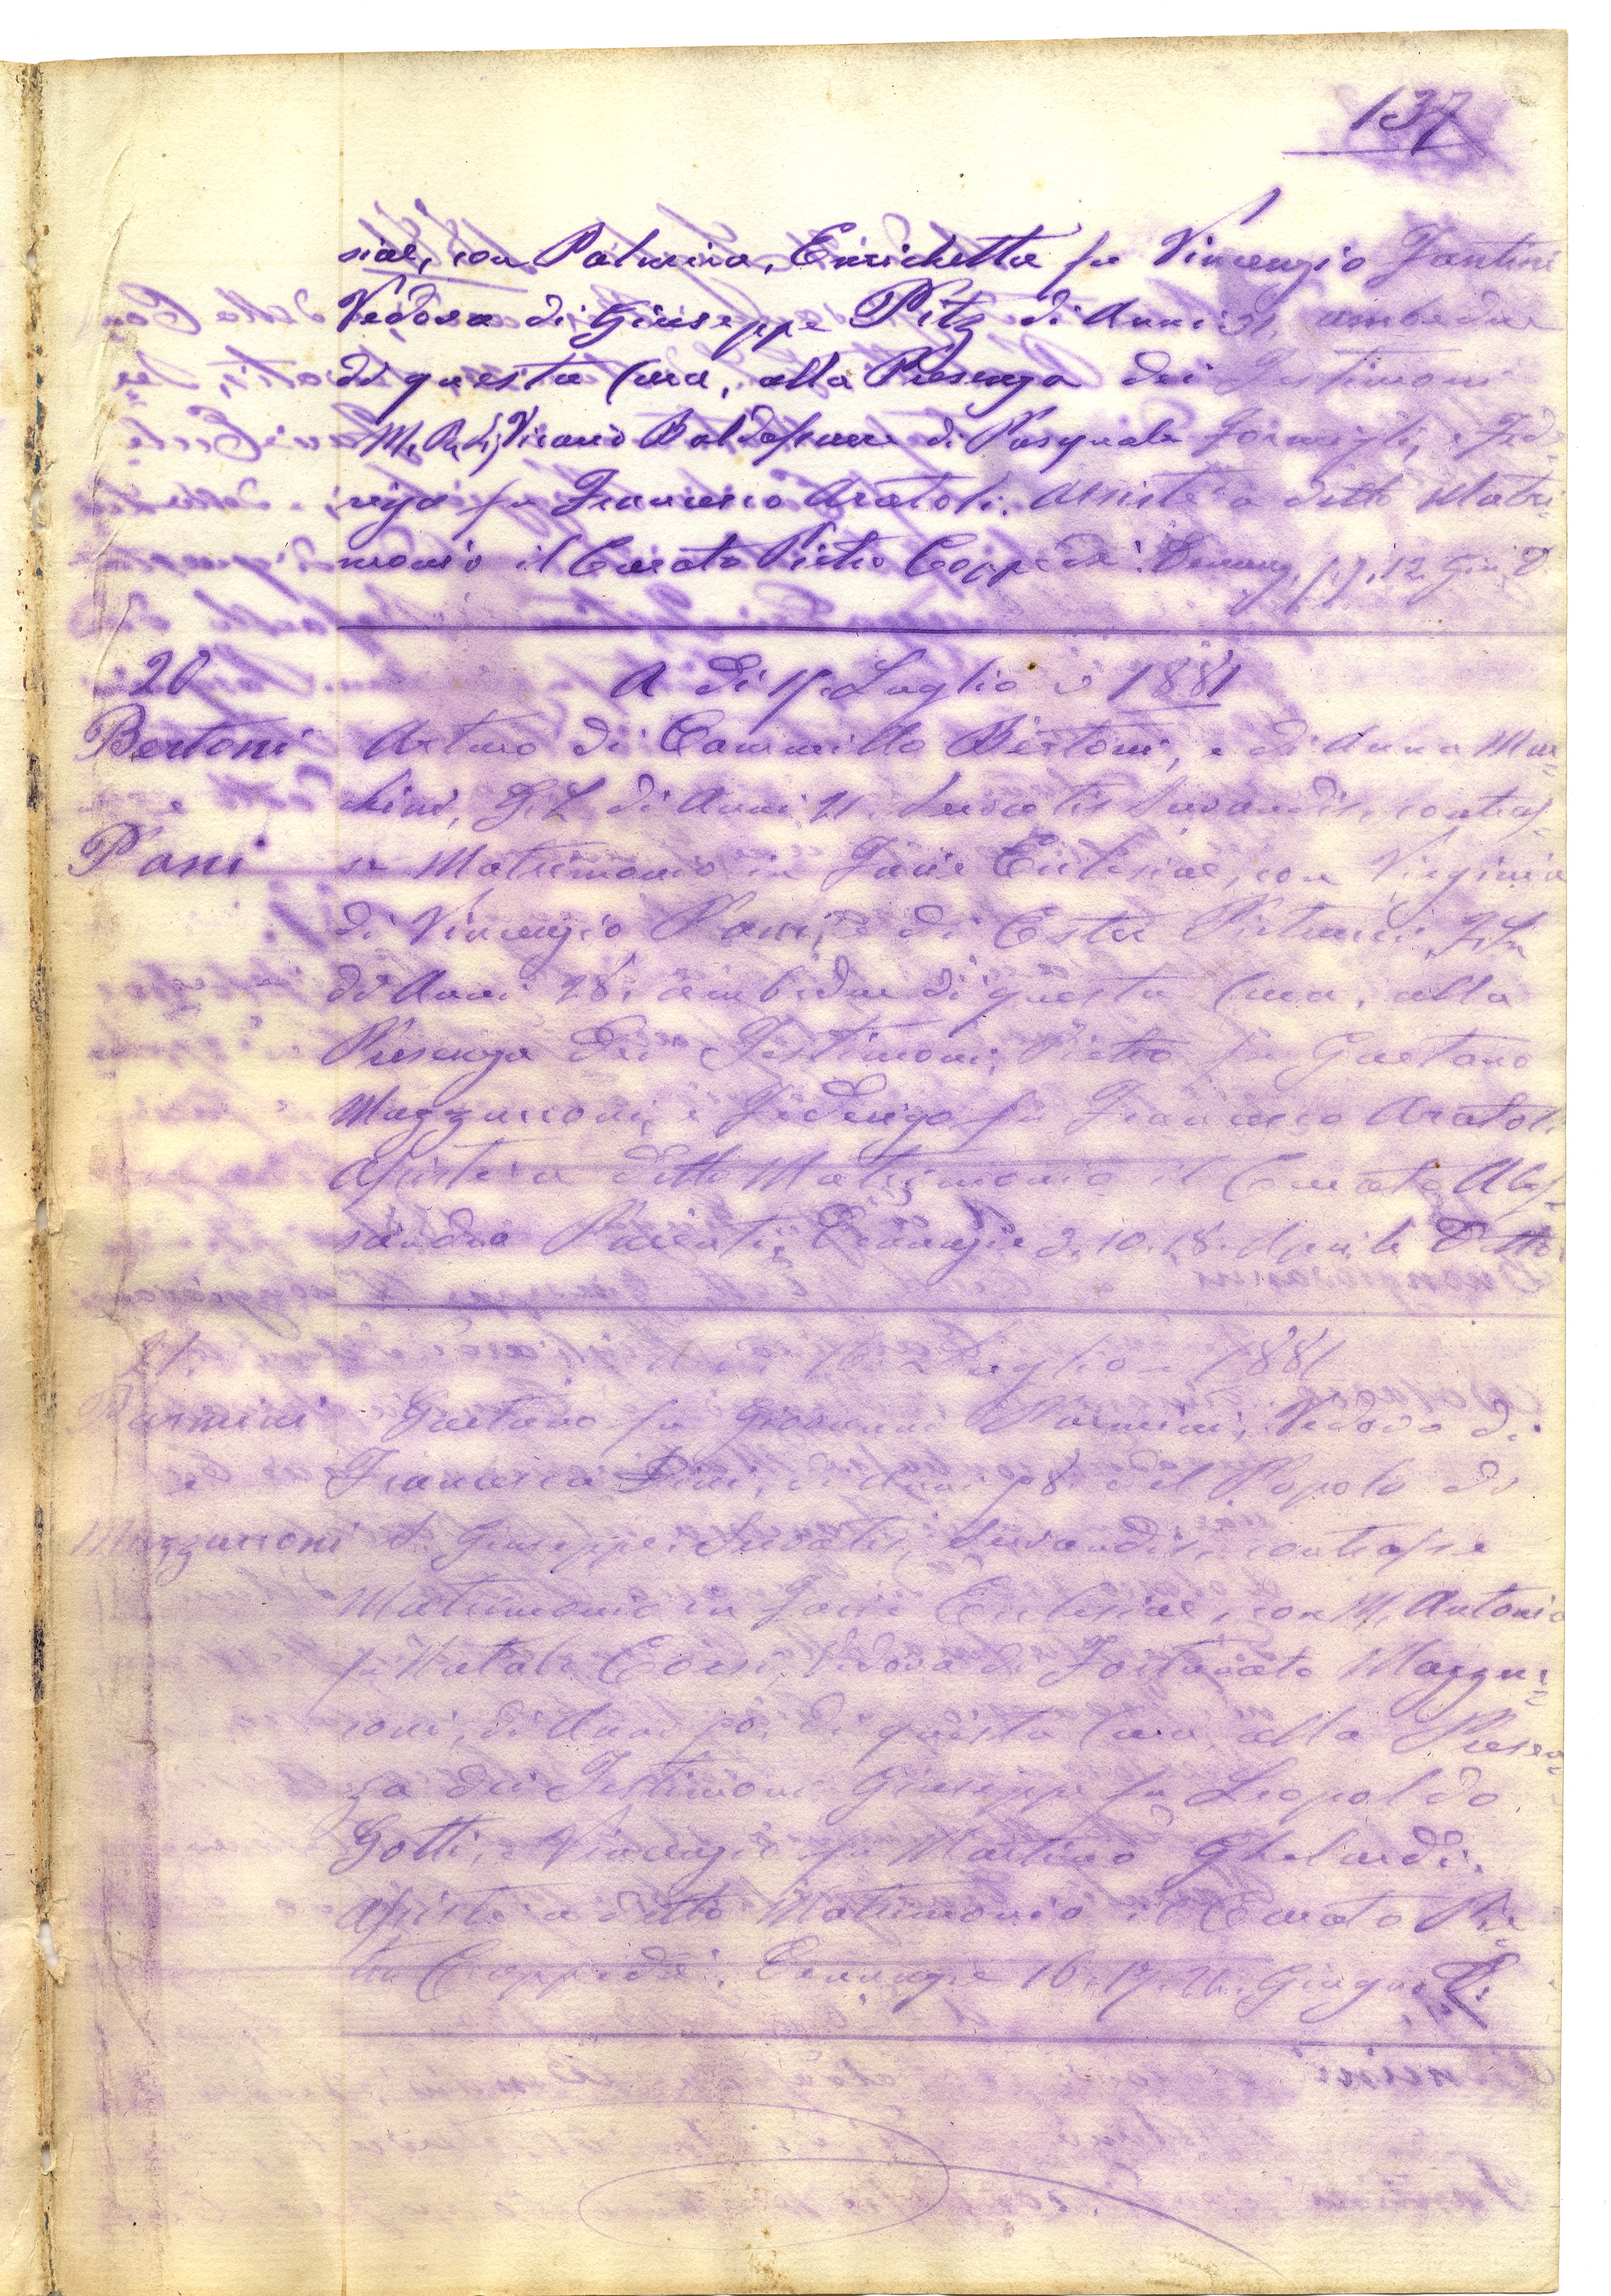 137
siae, con Palmira, Enrichetta fu Vincenzio Fantini
Vedova di Giuseppe Pitz di Anni 31, ambedue
di questa Cura, alla Presenza dei Testimoni
M. R. Vicario Baldassarre di Pasquale e Fede=
rigo fu Francesco Aratoli. Assistè a detto Matri=
monio il Curato Pietro Coppedè. Denunz. 12 Giu.
20
A di Luglio 1881
Bertoni
e
Pani
Arturo di Cammillo Bertoni, e di Anna Mar=
chini, G.L. di Anni Servatis Servandis, contras=
se Matrimonio in Facie Eclesiae, con Virginia
di Vincenzio Pani, e di Ester
di Anni 28, ambedue di questa Cura, alla
Presenza dei Testimoni, Pietro fu Gaetano
Mazzarroni, e Federigo fu Francesco Aratoli
Assistè a detto Matrimonio il Curato Ales=
sandro Denunzie 3. 10. 18. Aprile Detto
21.
A di 16 Luglio 1881
Parmini
e
Mazzarroni
Gaetano fu Giovanni Parmini, Vedovo di
Francesca Dini, di Anni del Popolo di
S. Giuseppe. Servatis, Servandis, contrasse
Matrimonio in Facie Eclesiae, con M. Antonia
fu Natale Corsi, Vedova di Fortunato Mazzar=
roni, di Anni di questa Cura, alla Presen=
za dei Testimoni Giuseppe fu Leopoldo
Gotti, e Vincenzio fu Martino Ghelardi.
Assistè a detto Matrimonio il Curato Pie=
tro Coppedè. Denunzie 16. 17. Giugno